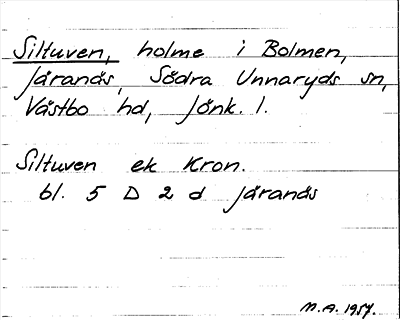 Siltuven, holme i Bolmen,
Järanäs, Södra Unnaryds sn,
Västbo hd, Jönk. l.
Siltuven ek Kron.
bl. 5 D 2 d Järanäs
M.A. 1957.